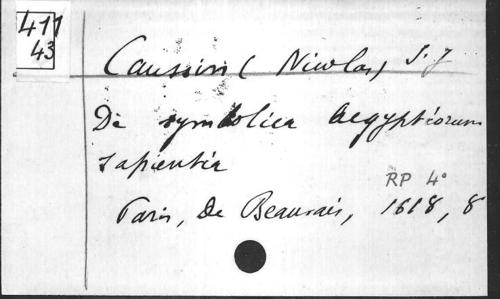 411
43
Caussin (Nicolas) S.J
De symbolica Aegyptiorum
sapientia
RP 4°
Paris, De Beauvais, 1618, 8